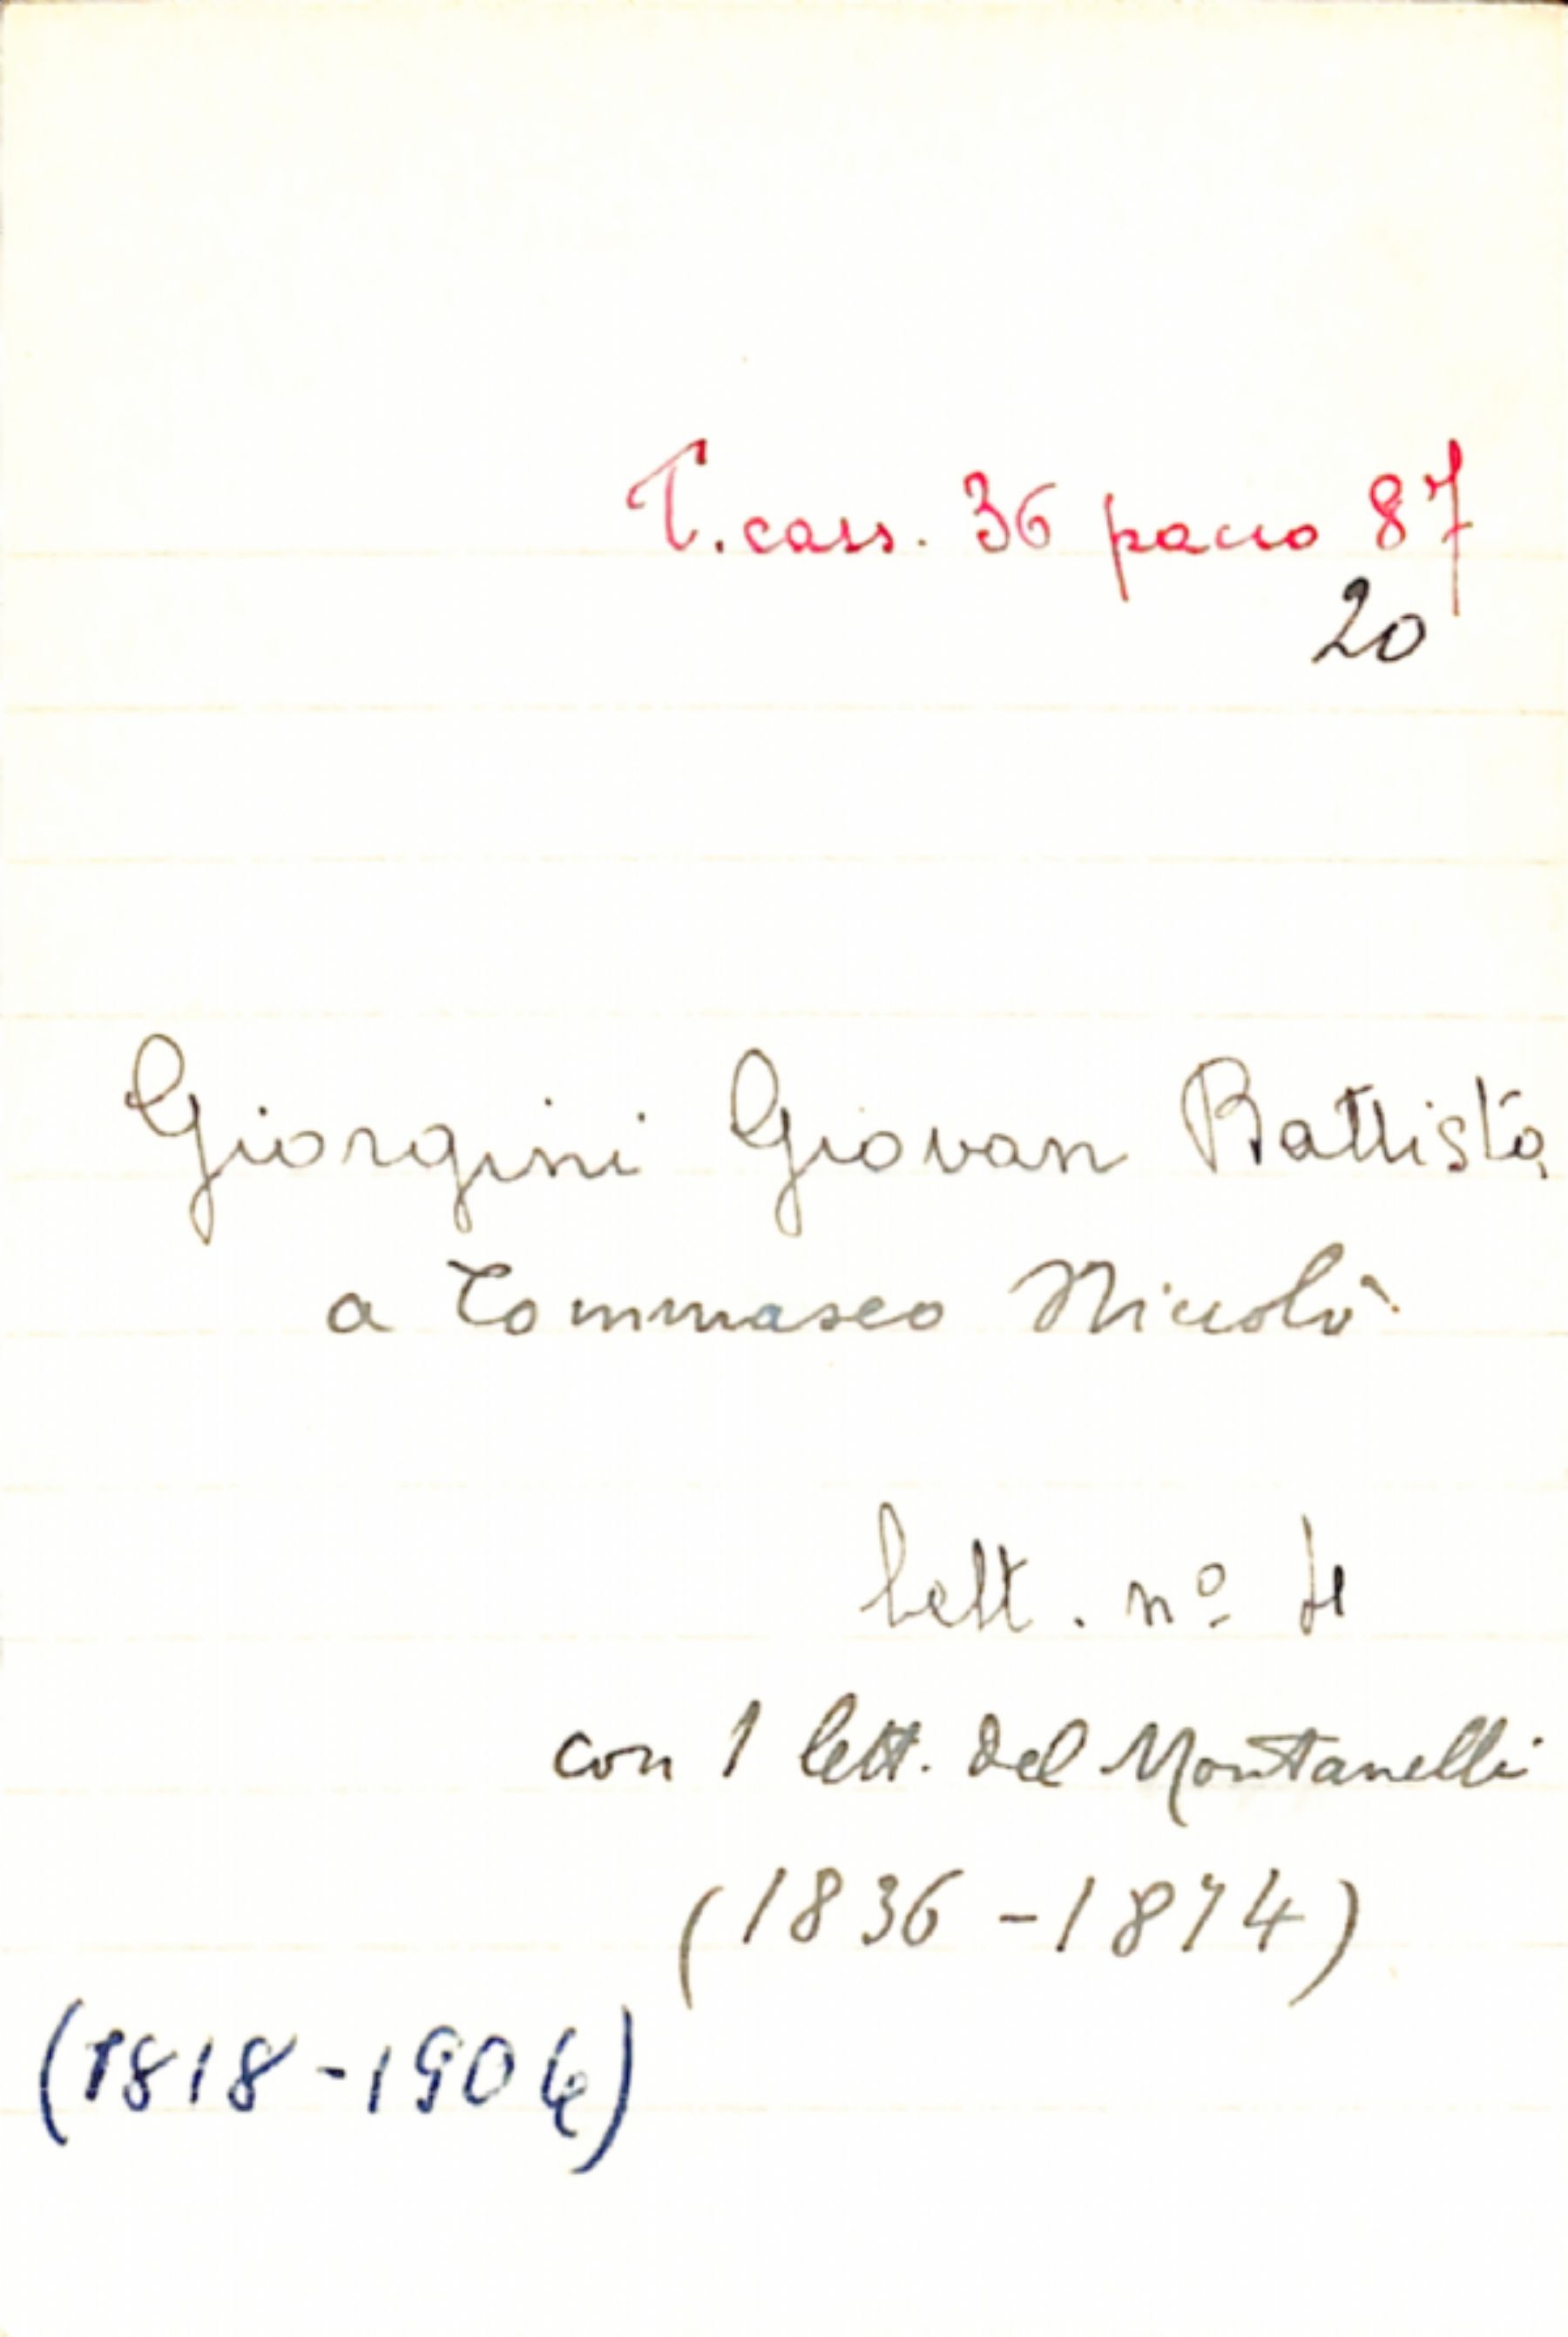 T. cass. 36 pacco 87
20
Giorgini Giovan Battista
a Tommaseo Niccolò
lett. nº 4
con 1 lett. del Montanelli
(1836-1874)
(1818-1904)